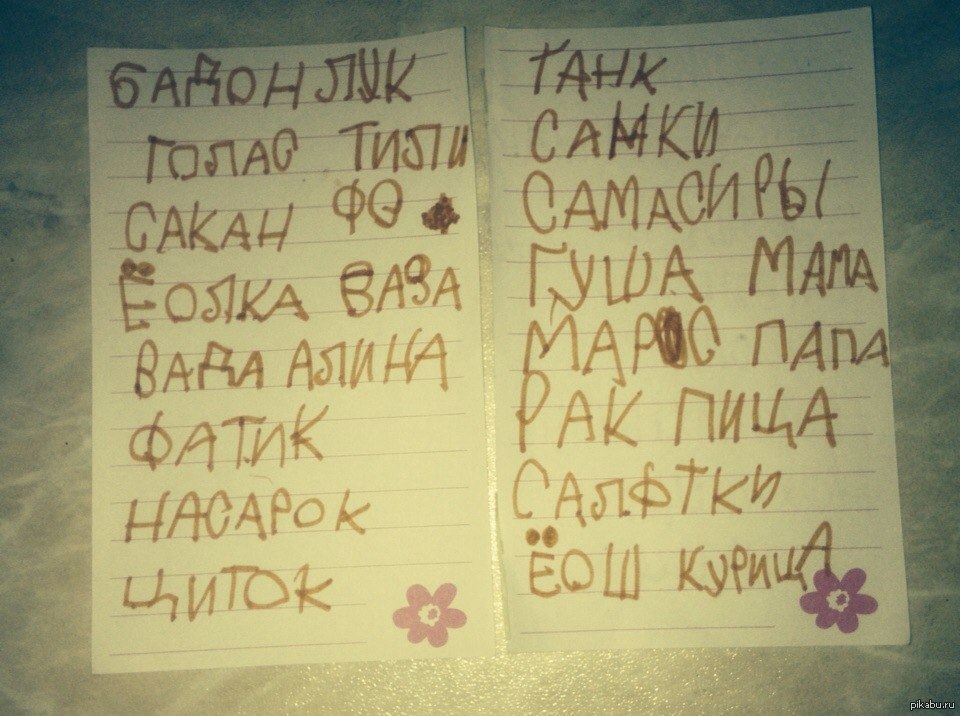 БАДОН ЛУК
ГОЛАС ТИЛИ
САКАН ФО
ЁОЛКА ВАЗА
ВАДА АЛИНА
ФАТИК
НАСАРОК
ЦИТОК
ТАНК
САМКИ
САМАСИРЫ
ГУША МАМА
МАРОС ПАПА
РАК ПИЦА
САЛФТКИ
ЁОШ КУРИЦА
pikabu.ru